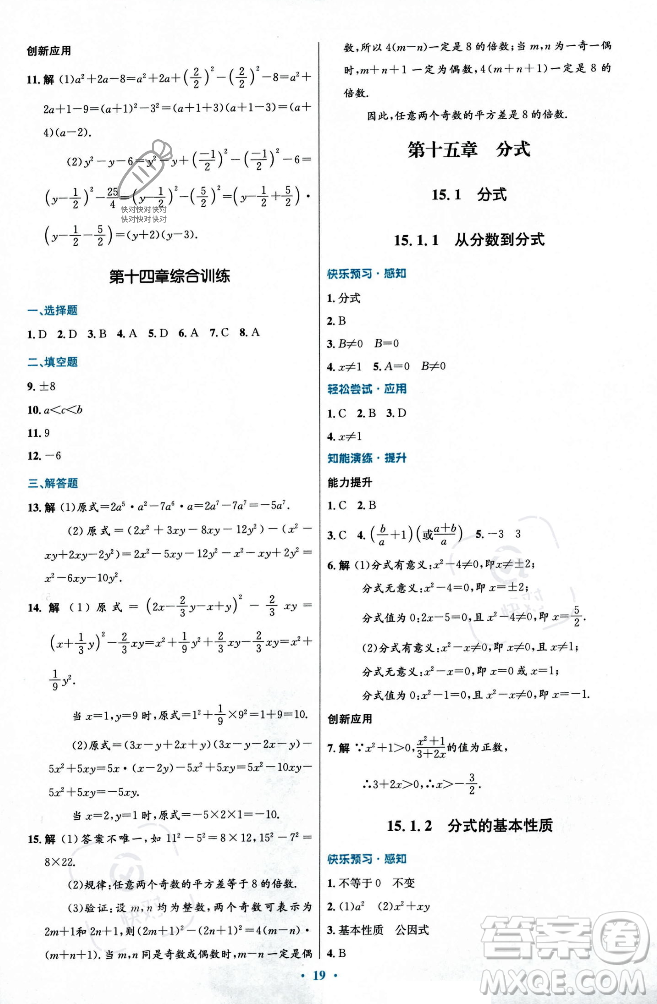 创新应用
11. 解 (1)a²+2a-8=a²+2a+(2/2)²-(2/2)²-8=a²+
2a+1-9=(a+1)²-3²=(a+1+3)(a+1-3)=(a+
4)(a-2).
(2)y²-y-6=y²-y+(-1/2)²-(-1/2)²-6=
(y-1/2)²-25/4=(y-1/2)²-(5/2)²=(y-1/2+5/2)·
快对快对快对
快对快对快对
(y-1/2-5/2)=(y+2)(y-3).
第十四章综合训练
一、选择题
1. D 2. D 3. B 4. A 5. D 6. A 7. C 8. A
二、填空题
9. ±8
10. a<c<b
11. 9
12. -6
三、解答题
13. 解 (1)原式=2a⁵·a²-7a⁶·a=2a⁷-7a⁷=-5a⁷.
(2)原式=(3x+2y)(2x-y)=6x²-3xy+4
xy+2xy)=
x²-6x²
14. 解 (1)原式=(2/3y-x+x)²-2/3xy=
(x+1/3y)²-2/3xy=x²+2/3xy+1/9y²-2/3xy=x²+
1/9y².
当x=1,y=9时,原式=1²+1/9×9²=1+9=10.
(2)原式=(3x-y+2x+y)(3x-y)-5x²+
5xy=5x·(3x-y)-5x²+5xy=15x²-5xy-
5x²+5xy=10x².
当x=1时,原式=10x²=10.
15. 解 (1)答案不唯一,如11²-9²=5×8;15²-
8×22.
(2)规律:任意两个奇数的平方差等于8的倍数.
(3)验证:设m,n均为整数,两个奇数可表示为
2m+1和2n+1,则(2m+1)²-(2n+1)²=4(m-n)(m+n+1).
当m,n同是奇数或偶数时,m-n一定是偶
数,所以4(m-n)一定是8的倍数;当m,n一奇一偶
时,m+n+1一定为偶数,4(m+n+1)一定是8的
倍数.
因此,任意两个奇数的平方差是8的倍数.
第十五章 分式
15.1 分式
15.1.1 从分数到分式
快乐预习·感知
1. 分式
2. B
3. B≠0 B=0
4. x≠1 5. A=0 B≠0
轻松尝试·应用
1. C 2. B 3. D
4. x≠1
知能演练·提升
能力提升
1. C 2. B
3. C 4. (b/a+1)(或(a+b)/a) 5. -3 3
6. 解 (1)分式有意义:x²-4≠0,即x≠±2;
分式无意义:x²-4=0,即x=±2;
分式值为0:2x-5=0,且x²-4≠0,即x=5/2.
(2)分式有意义:x-1≠0,即x≠1;
分式无意义:x-1=0,即x=1;
分式值为0:x²-1=0,且x-1≠0,即x=-1.
创新应用
7. 解 ∵x²+1>0,(x²+1)/(3+2x)的值为正数,
∴3+2x>0,即x>-3/2.
15.1.2 分式的基本性质
快乐预习·感知
1. 不等于0 不变
2. (1)a² (2)x²+xy
3. 基本性质 公因式
4. B
·19·
答案卷
MXQE.COM